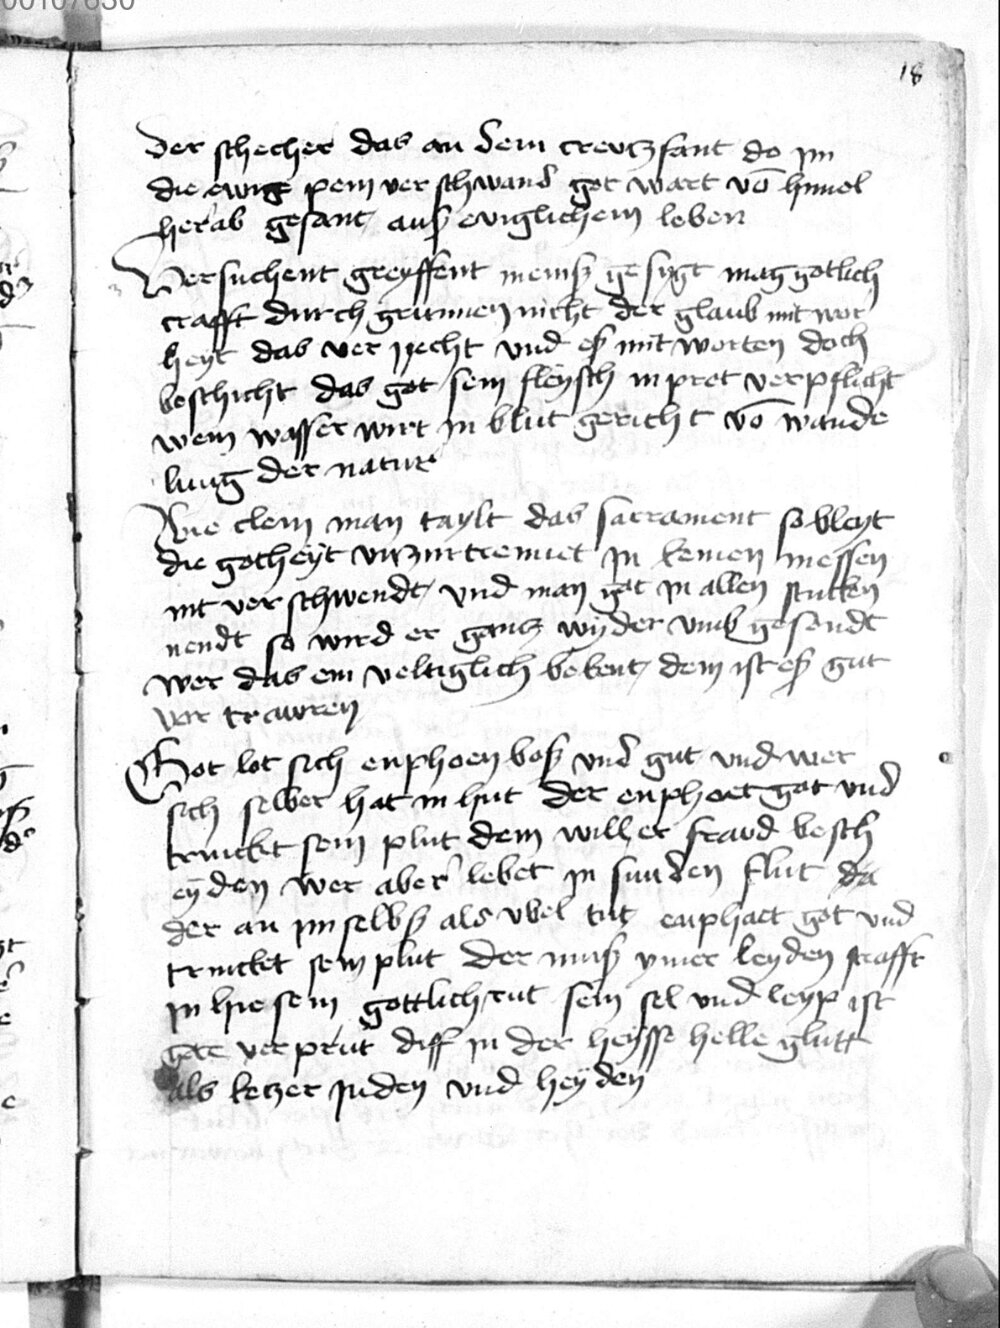 00107630
18
Der schecher das an dem creutz fant do im
die ewig pein verschwand got wart vō himel
herab gesant auß ewiglichem leben
Versuchent greyffent meinß gesygt mag gotlich
crafft durch grunnen nicht der glaub mit wor
heyt das ver jecht vnd eß mit worten doch
beschicht das got sein fleysch in pret verpflicht
wein wasser wirt in blut gericht vō wande
lung der natur
Wie clein man taylt das sacrament so bleyt
die gotheyt vnzurtrennet in keinen messen
nit verschwendt vnd man got in allen stucken
nendt so wird er gantz wyder vmb gesendt
wer das ein veltiglich bekent dem ist eß gut
vor trawren
Got lot sich enphoen boß vnd gut vnd wer
sich selber hat in hut der enphoet got vnd
trincket sein plut dem will er fraud besch
eyden wer aber lebet in sunden flut da
der an im selbß als vbel tut enphaet got vnd
trincket sein plut der muß ymer leyden straff
in hie sein gottlich rut sein sel vnd leyp ist
gere verprut diff in der heysse helle glutt
als ketzer juden vnd heyden